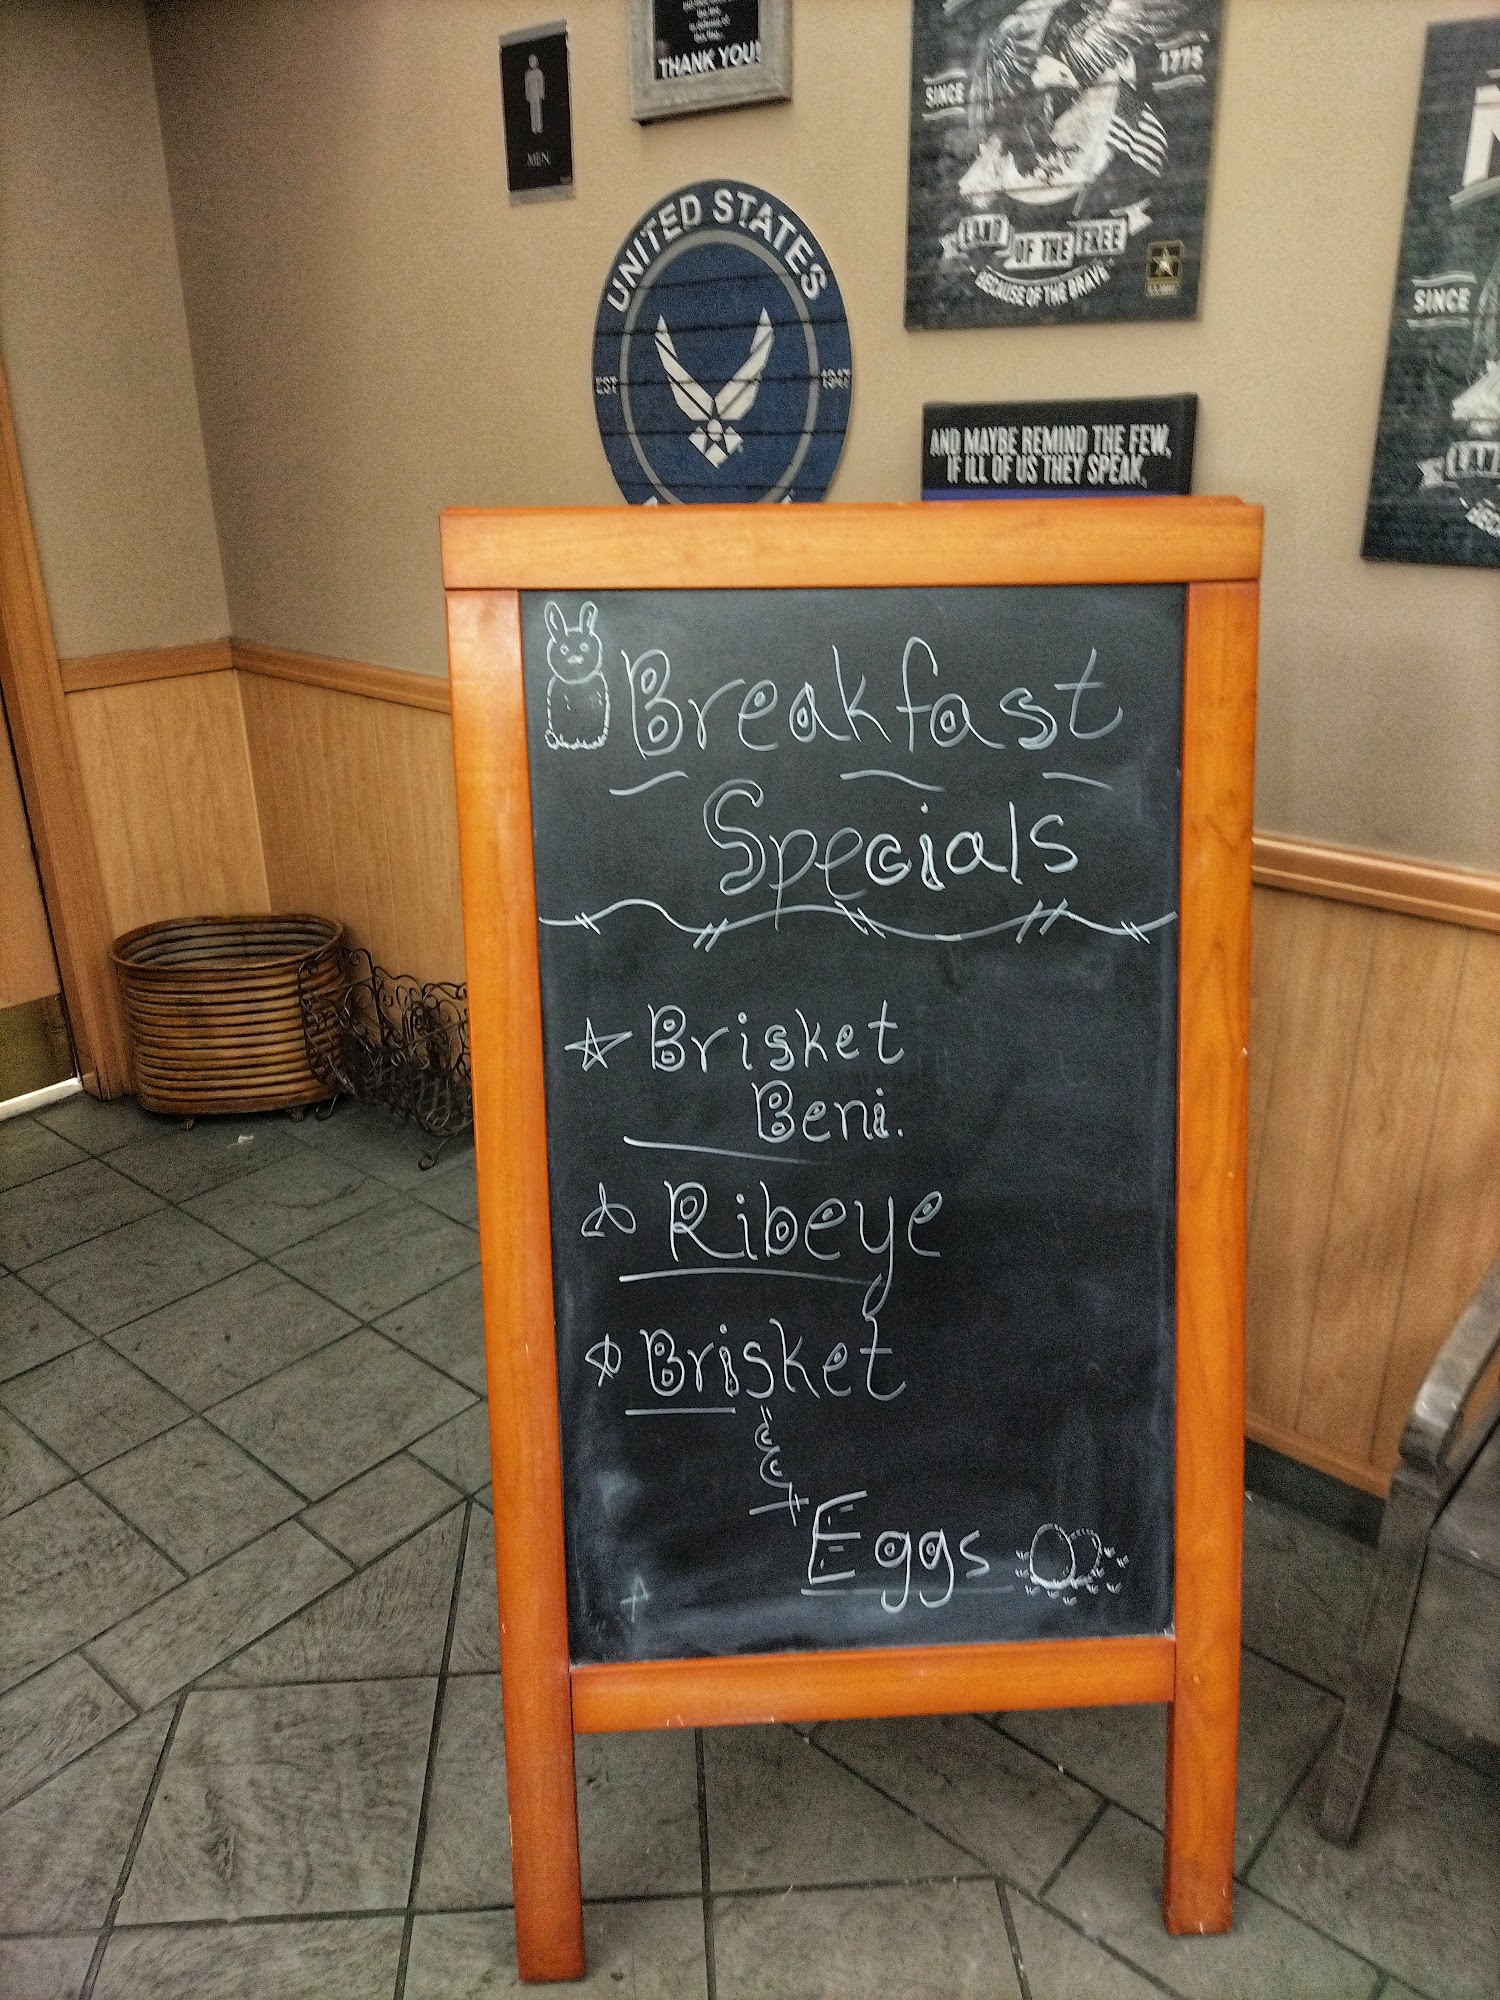 THANK YOU!
MEN
SINCE 1775
LAND OF THE FREE
BECAUSE OF THE BRAVE
UNITED STATES
EST 1947
SINCE
AND MAYBE REMIND THE FEW,
IF ILL OF US THEY SPEAK,
Breakfast
Specials
Brisket
Beni.
Ribeye
Brisket
&
Eggs